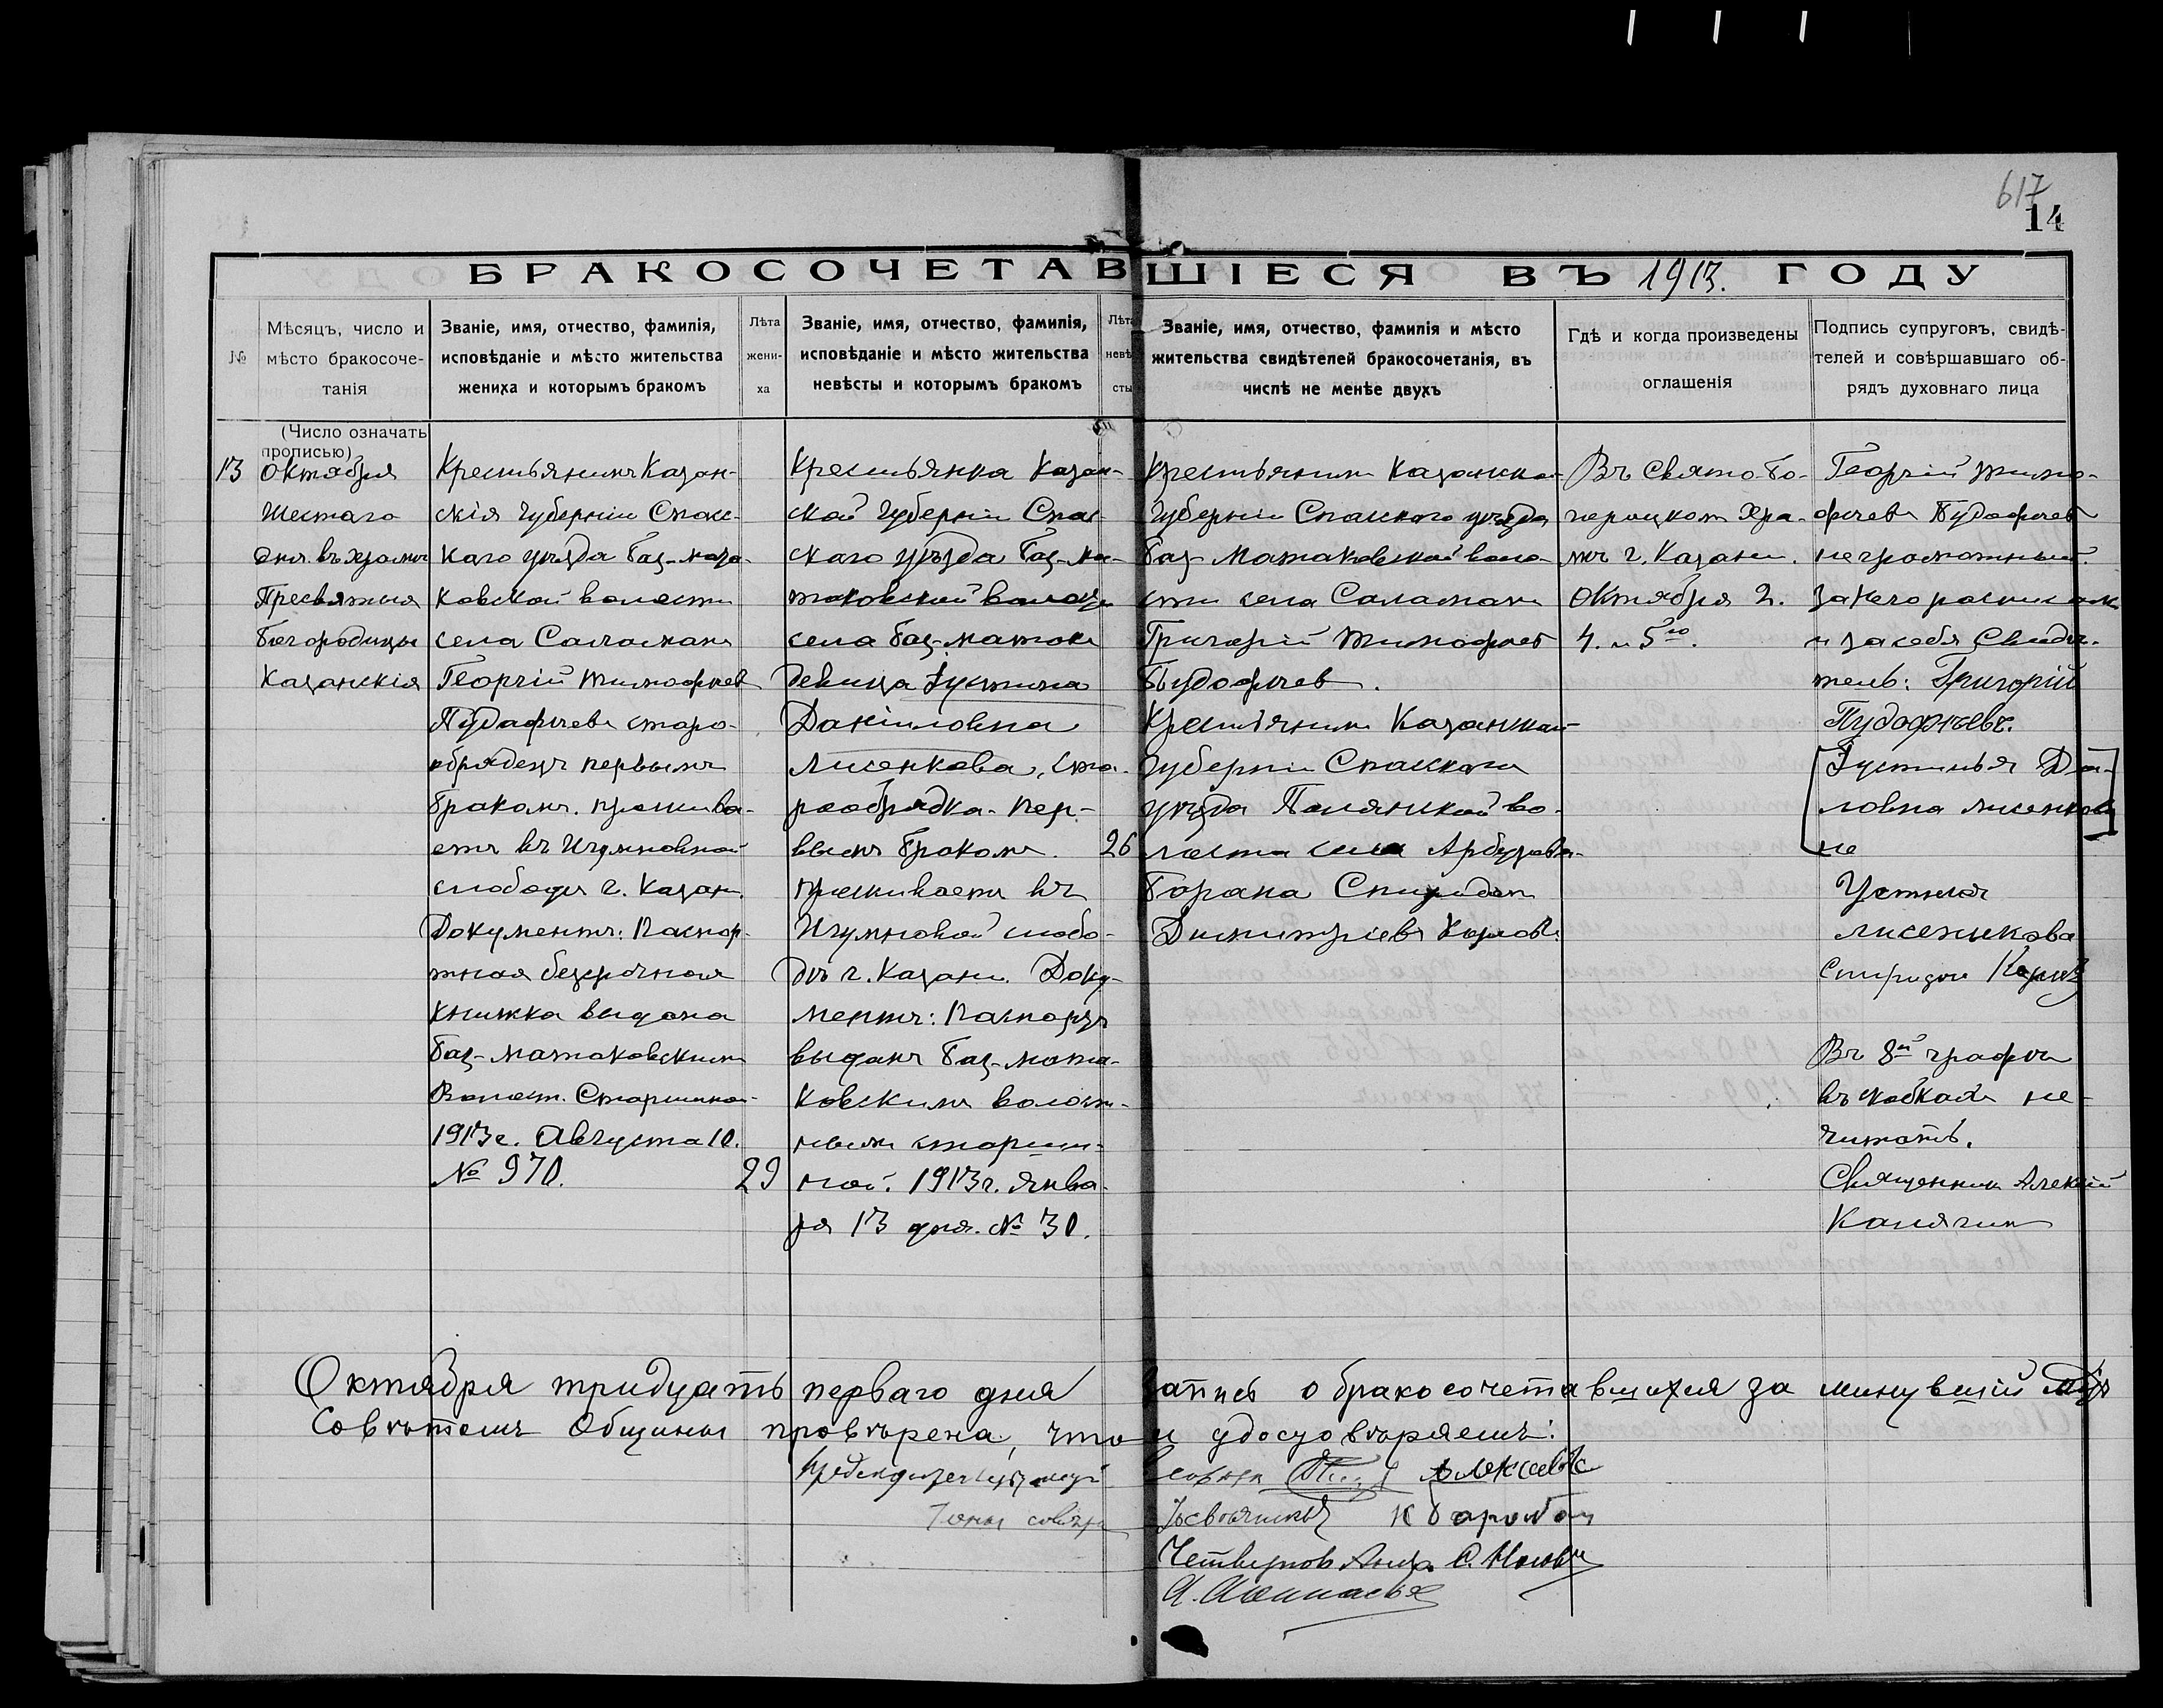 617
14
БРАКОСОЧЕТАВШІЕСЯ ВЪ 1913. ГОДУ
№
Мѣсяцъ, число и
мѣсто бракосоче-
танія
Званіе, имя, отчество, фамилія,
исповѣданіе и мѣсто жительства
жениха и которымъ бракомъ
Лѣта
жени-
ха
Званіе, имя, отчество, фамилія,
исповѣданіе и мѣсто жительства
невѣсты и которымъ бракомъ
Лѣта
невѣ
сты
Званіе, имя, отчество, фамилія и мѣсто
жительства свидѣтелей бракосочетанія, въ
числѣ не менѣе двухъ
Гдѣ и когда произведены
оглашенія
Подпись супруговъ, свидѣ-
телей и совѣршавшаго об-
рядъ духовнаго лица
(Число означать
прописью)
13
Октября
Шестаго
дня. въ храмѣ
Пресвятыя
Богородицы
Казанскія
Крестьянинъ Казан-
скія губерніи Спасс-
каго уѣзда Баз-мата-
ковской волости
села Саламани
Георгій Тимофѣев
Пудафѣевъ старо-
обрядецъ первымъ
бракомъ. прожива-
етъ въ Игумновной
слободѣ г. Казан.
Документъ: Паспор-
тная безсрочная
книжка выдана
Баз-матаковскимъ
Волост. Старшиной
1913 г. Августа 10.
№ 970.
29
Крестьянка Казан-
ской губерніи Спас-
скаго уѣзда Баз-ма-
таковской волости
села Баз-матаки
девица Іустина
Даніиловна
Лисенкова, ста-
рообрядка. пер-
вымъ бракомъ.
проживаетъ въ
Игумновой слобо-
дѣ г. Казани. Доку-
ментъ: Паспортъ
выданъ Баз-мата-
ковскимъ волост-
нымъ старши-
ной. 1913 г. Янва-
ря 13 дня. № 30.
26
Крестьянинъ Казанской
губерніи Спасскаго уѣзда
Баз-Матаковской воло-
сти села Саламани
Григорій Тимофѣев
Пудофѣев.
Крестьянинъ Казанской
губерніи Спасскаго
уѣзда Полянской во-
лости села Арбузова-
Барана Спиридон
Димитріевъ
Въ Свято-Бо-
городицком Хра-
мѣ г. Казани.
Октября 2.
4. и 5го.
Георгій Тимо-
фѣевъ Пудофѣев
неграмотный.
За него росписался
и за себя Свидѣ-
тель: Григорій
Пудофѣевъ.
[Іустинья Дани-
ловна Лисенкова]
не
Устиня
Лисенкова
Спиридон
Въ 8й графѣ
въ скобкахъ не-
читать.
Священник Алексій
Калягин
Октября тридцать перваго дня запись о бракосочетавшихся за минувшій
Совѣтомъ Общины провѣрена, что и удостовѣряемъ:
Алексѣевъ
Члены совѣта
Четвергов